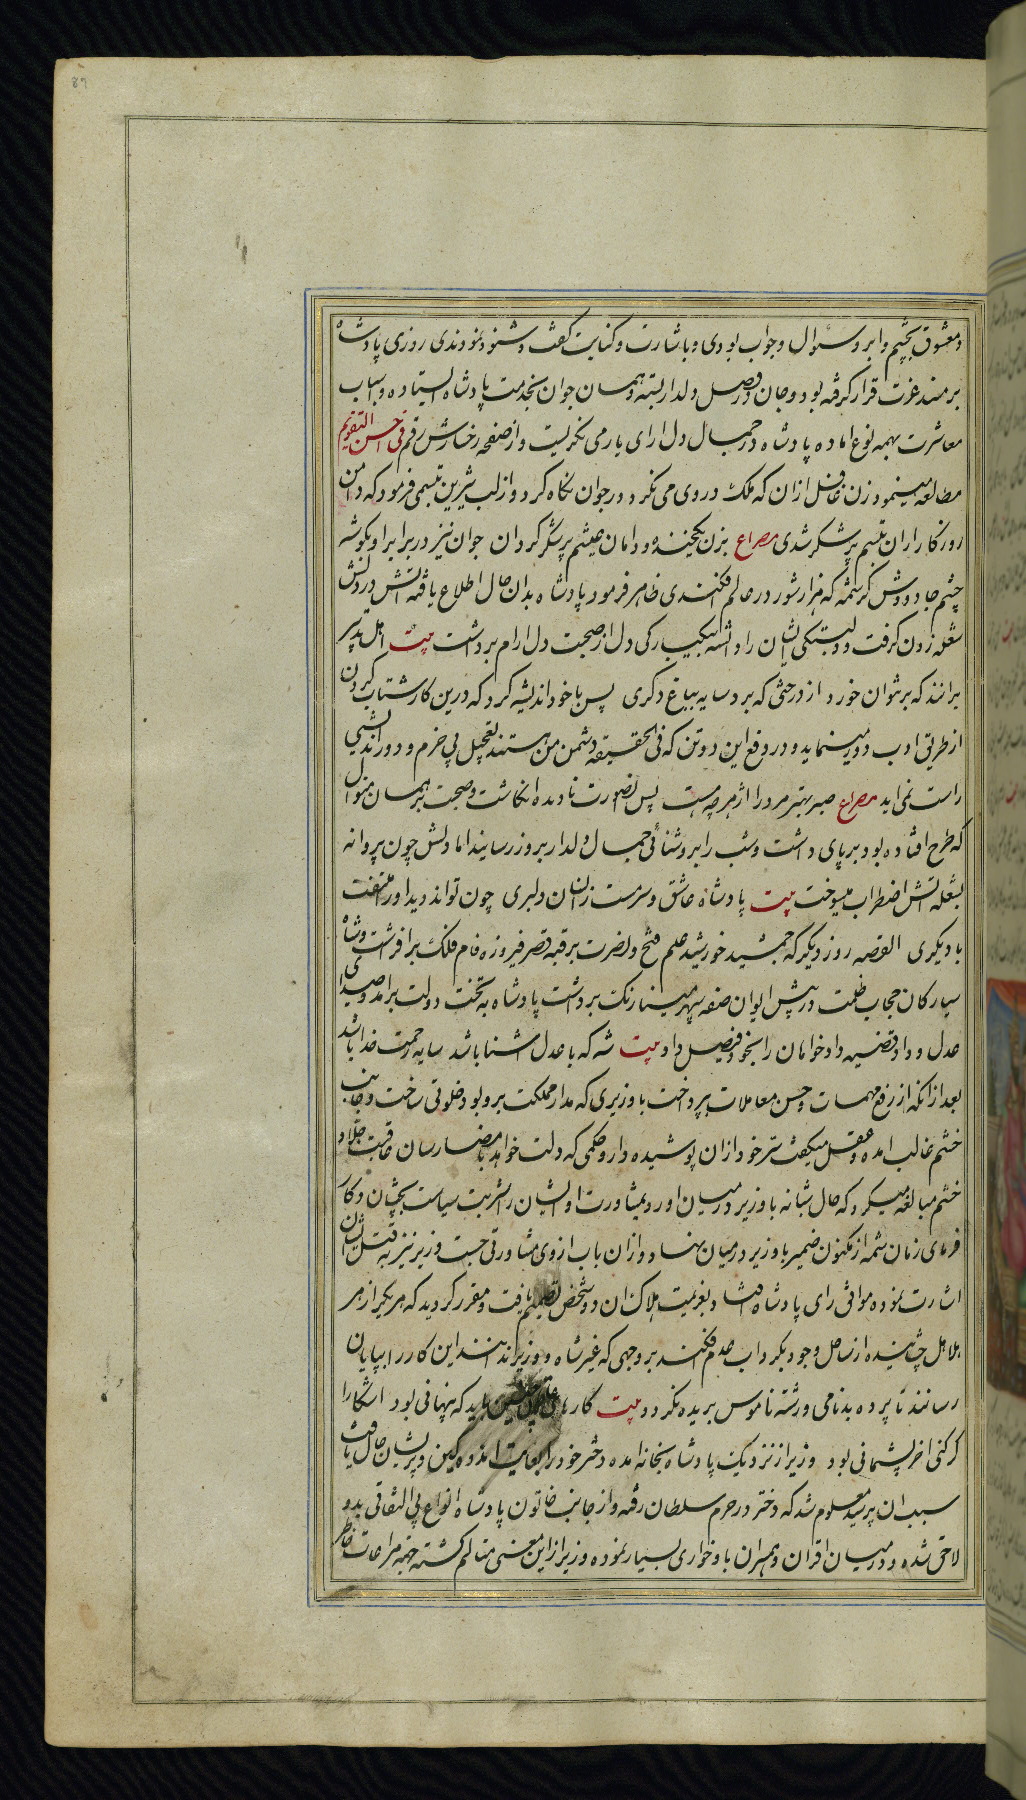 89
و معشوق بچشم و ابرو سئوال و جواب بودی و باشارت و کنایت گفت و شنود نمودندی روزی پادشاه
بر مسند عزت قرار گرفته بود و جان در وصل دلدار بسته و همان جوان بخدمت پادشاه ایستاده و اسباب
معاشرت بهمه نوع اماده پادشاه در جمال دل ارای یار می نگریست و از صفحه رخسارش رقم فی احسن التقویم
مطالعه مینمود زن غافل ازان که ملک در وی می نگرد در جوان نگاه کرد و از لب شیرین تبسمی فرمود که دامن
روزگار ازان تبسم پر شکر شدی مصراع بزن یکخنده و دامان چشم پر شکر گردان جوان نیز در برابر او بگوشه
چشم جادووش کرشمه که هزار شور در عالم افکندی ظاهر فرمود پادشاه بدان حال اطلاع یافته اتش در دلش
شعله زدن گرفت و دلبستگی ایشان را دانسته بیکبارگی دل از صحبت دل ارام برداشت بیت اهل تدبیر
برانند که بر نتوان خورد از درختی که برد سایه بباغ دگری پس با خود اندیشه کرد که درین کار شتاب کردن
از طریق ادب دور مینماید و در دفع این دو تن که فی الحقیقه دشمن من هستند تعجیل بی حزم و دوراندیشی
راست نمی اید مصراع صبر بهتر مرد را از هر چه هست پس انصورت نادیده انگاشت و صحبت بر همان منوال
که طرح افتاده بود بر پای داشت و شب را بروشنائی جمال دلدار بروز رسانید اما دلش چون پروانه
بشعله اتش اضطراب میسوخت بیت پادشاه عاشق و سرمست زانسان دلبری چون تواند دید او را ملتفت
با دیگری القصه روز دیگر که جمشید خورشید علم فتح و نصرت بر قبه قصر فیروزه فام فلک برافراشت و شاه
سیارگان حجاب ظلمت در پیش ایوان صفه سپهر مینارنگ برداشت پادشاه به تخت دولت برامد و صیدای
عدل و داد و قضیه دادخواهان را بنجو فیصل داد بیت شه که با عدل اشنا باشد سایه رحمت خدا باشد
بعد ازانکه از رفع مهمات و حسن معاملات بپرداخت با وزیری که مدار مملکت برو بود خلوتی ساخت و جانب
خشم غالب امده و عقل میگفت سر خود ازان پوشیده دار و حکمی که دلت خواهد بامضا رسان عاقبت جلاد
خشم مبالغه میکرد که حال شبانه با وزیر در میان اورد و بمشاورت او ایشان را شربت سیاست بچشان و کار
فرمای زمان شمه از مکنون ضمیر با وزیر در میان نهاد و ازان باب از وی مشاورتی جست وزیر نیز به قتل ایشان
اشارت نموده موافق رای پادشاه افتاد و بعزیمت هلاک ان دو شخص تصمیم یافت و مقرر گردید که هر یک را زهر
هلاهل چشانیده از ساحل وجود بگرداب عدم افکند بر وجهی که غیر شاه و وزیر ندانند این کار را بپایان
رسانند تا پرده بدنامی و رشته ناموس بریده نگردد بیت کارهای چنین باید که پنهانی بود اشکارا
گر کنی اخر پشیمانی بود وزیر از نزدیک پادشاه بخانه امده دختر خود را بغایت اندوهگین و پریشان حال یافت
سبب ان پرسید معلوم شد که دختر در حرم سلطان رفته و از جانب خاتون پادشاه انواع بی التفاتی بدو
لاحق شده و در میان اقران و همسران با وی خواری بسیار نموده وزیر از این معنی متالم گشته جهته مراعات خاطر